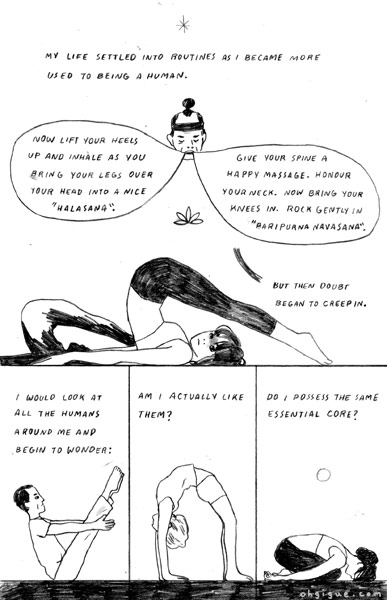 MY LIFE SETTLED INTO ROUTINES AS I BECAME MORE
USED TO BEING A HUMAN.
NOW LIFT YOUR HEELS
UP AND INHALE AS YOU
BRING YOUR LEGS OVER
YOUR HEAD INTO A NICE
"HALASANA".
GIVE YOUR SPINE A
HAPPY MASSAGE. HONOUR
YOUR NECK. NOW BRING YOUR
KNEES IN. ROCK GENTLY IN
"PARIPURNA NAVASANA".
BUT THEN DOUBT
BEGAN TO CREEP IN.
I WOULD LOOK AT
ALL THE HUMANS
AROUND ME AND
BEGIN TO WONDER:
AM I ACTUALLY LIKE
THEM?
DO I POSSESS THE SAME
ESSENTIAL CORE?
ohgigue.com